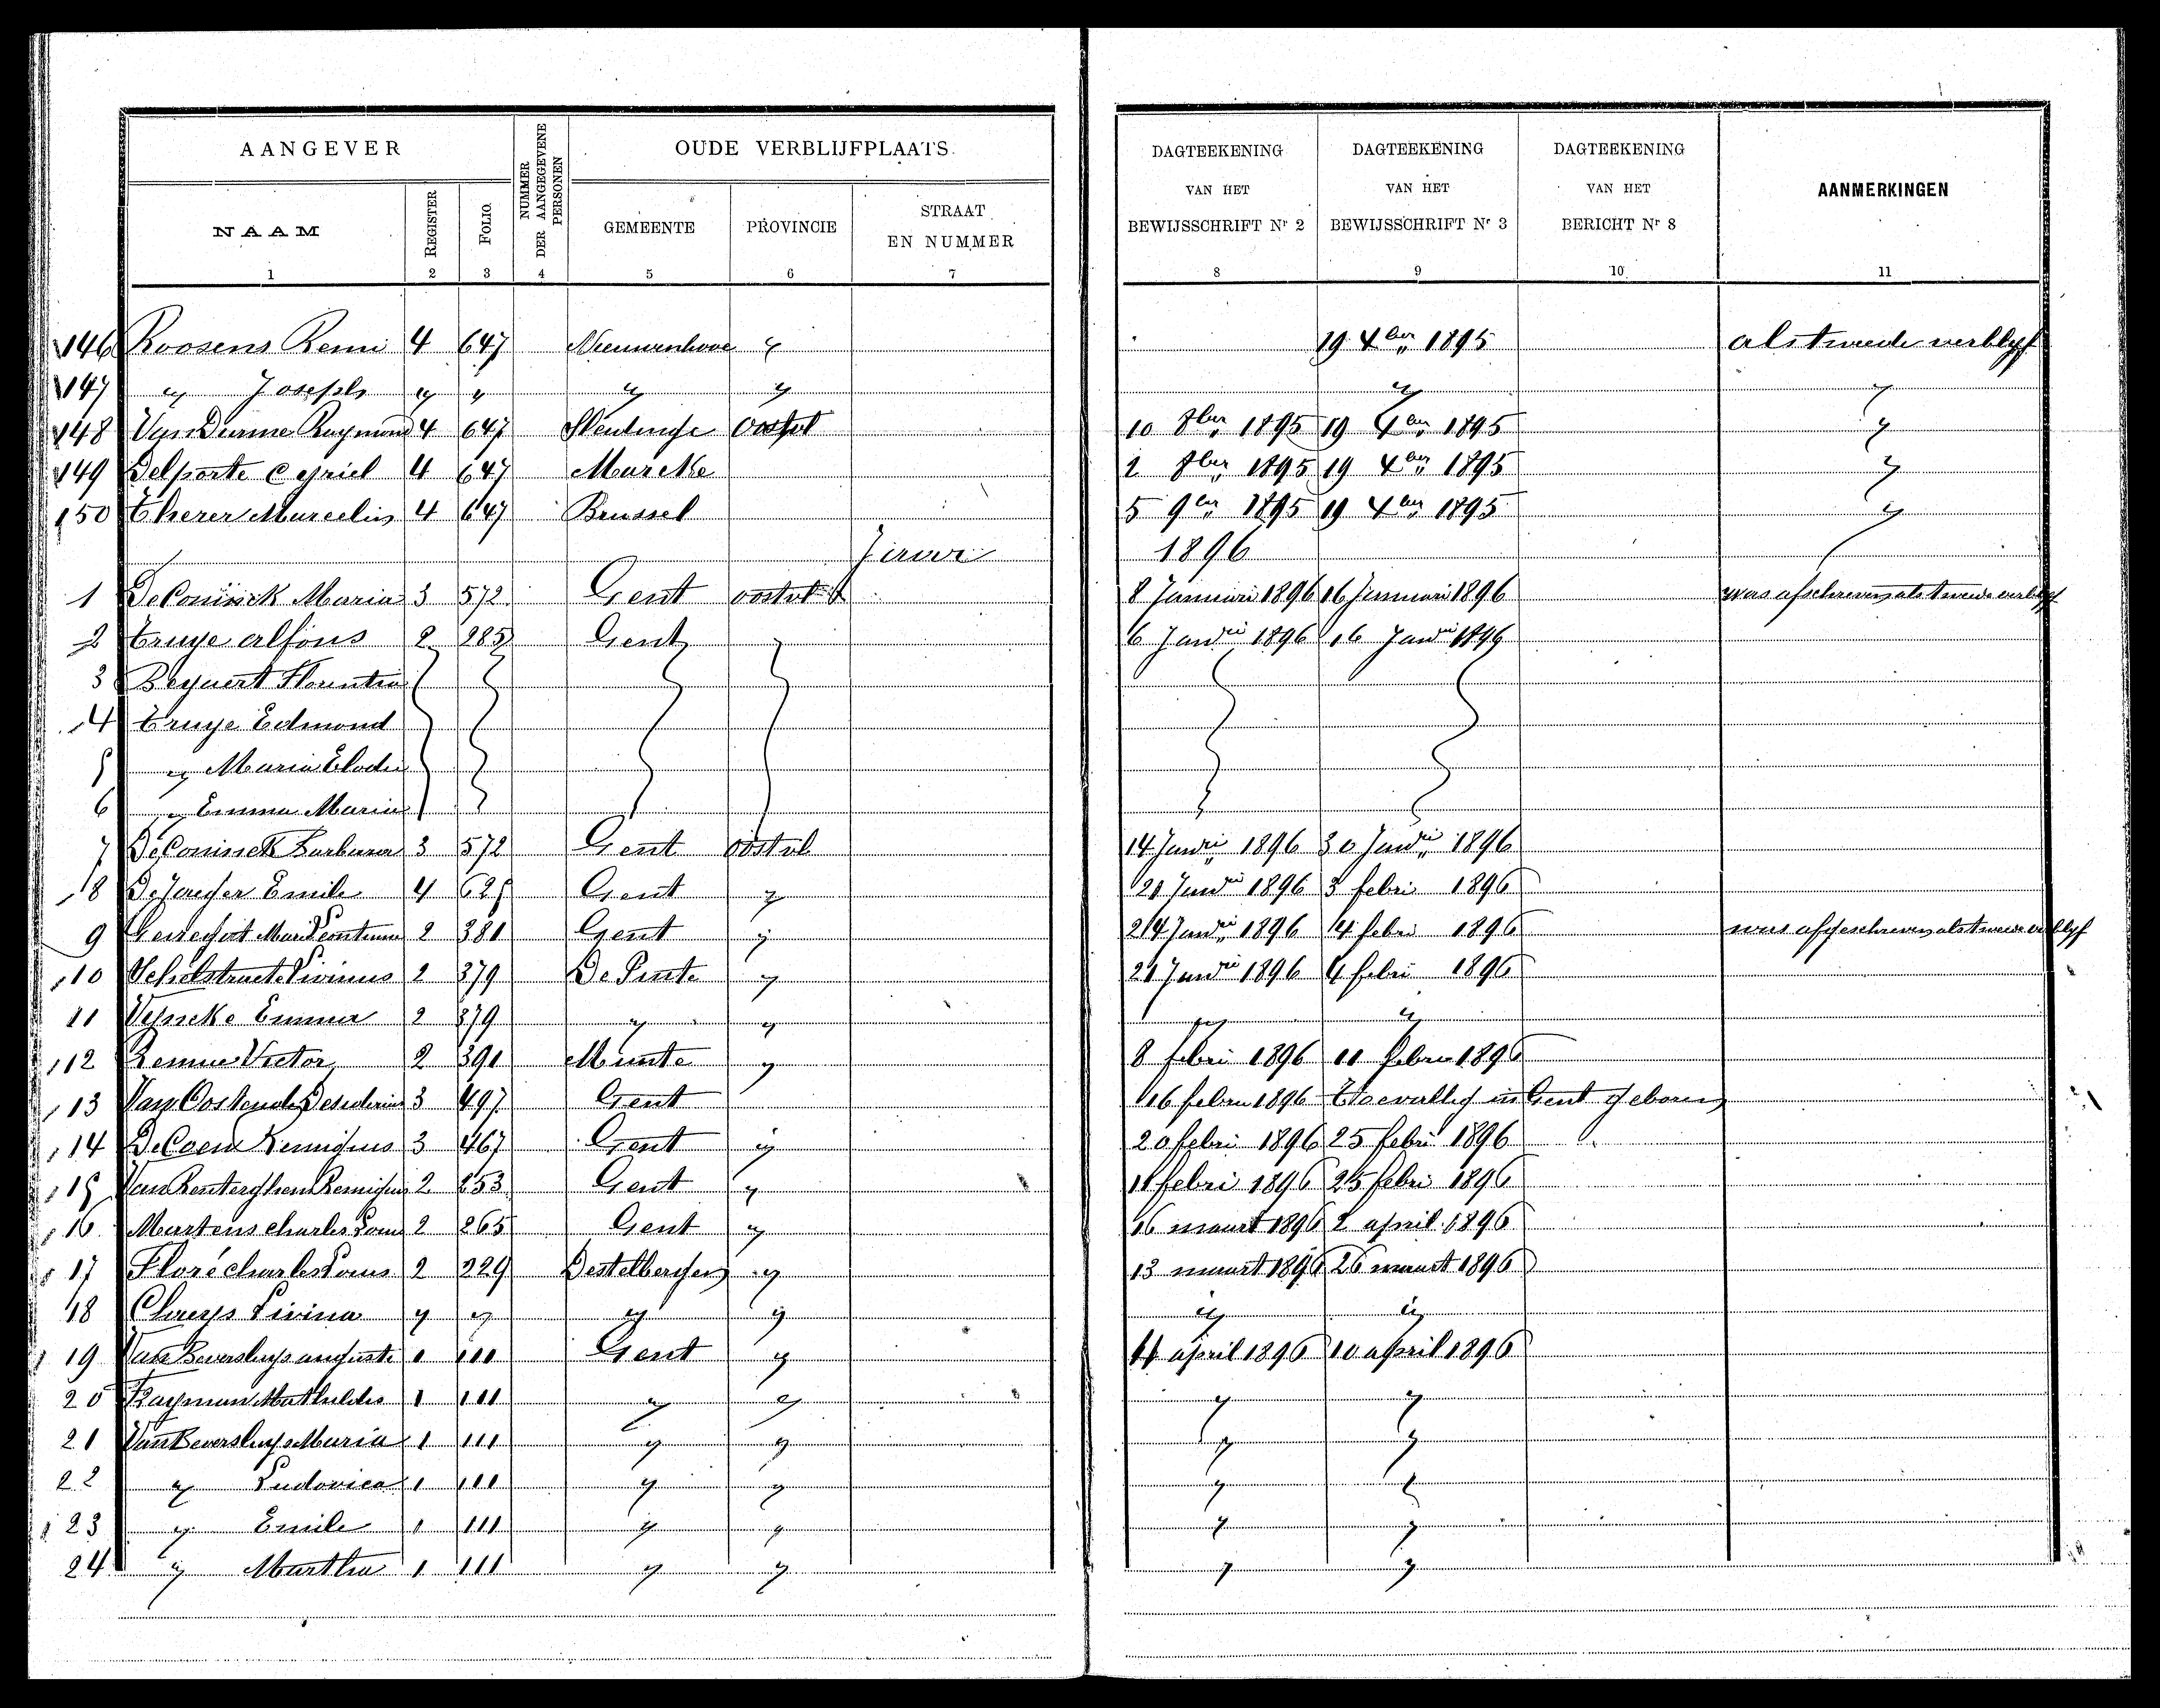 AANGEVER
NUMMER DER AANGEGEVENE PERSONEN
OUDE VERBLIJFPLAATS
DAGTEEKENING VAN HET BEWIJSSCHRIFT Nr 2
DAGTEEKENING VAN HET BEWIJSSCHRIFT Nr 3
DAGTEEKENING VAN HET BERICHT Nr 8
AANMERKINGEN
NAAM REGISTER FOLIO. GEMEENTE PROVINCIE STRAAT EN NUMMER
1 2 3 4 5 6 7 8 9 10 11
146 Roosens Remi 4 647 Nieuwenhove y 19 Xber 1895 als tweede verblyf
147 y Joseph y y y y y y
148 Van Durme Raymond 4 647 Oostvl 10 8ber 1895 19 Xber 1895 y
149 Delporte Cyriel 4 647 Marcke 2 8ber 1895 19 Xber 1895 y
150 Marcelin 4 647 Brussel 5 9ber 1895 19 Xber 1895 y
1896
1 DeConinck Maria 3 572 Gent oostvl 8 Januari 1896 16 Januari 1896 was afschreven als tweede verblyf
2 Truye alfons 2 285 Gent 6 Janrii 1896 16 Janrii 1896
3 Beyaert Florentia
4 Truye Edmond
5 y Maria Elodie
6 y Emma Maria
7 DeConinck Barbara 3 572 Gent oostvl 14 Janrii 1896 30 Janrii 1896
8 DeJaeger Emile 4 625 Gent y 21 Janrii 1896 3 febri 1896
9 2 381 Gent y 24 Janrii 1896 4 febri 1896 was afgeschreven als tweede verblyf
10 Schelstraete Livinus 2 379 De Pinte y 21 Janrii 1896 4 febri 1896
11 Vyncke Emma 2 379 y y y y
12 Remue Victor 2 391 Munte y 8 febri 1896 11 febru 1896
13 Van Oostende Desiderius 3 497 Gent 16 febru 1896 Toevallig in Gent geboren
14 DeCaen Remigius 3 467 Gent y 20 febri 1896 25 febri 1896
15 Van Renterghem Remigius 2 253 Gent y 11 febri 1896 25 febri 1896
16 Martens charles Louis 2 265 Gent y 16 maart 1896 2 april 1896
17 Floré charles Louis 2 229 Destelbergen y 13 maart 1896 26 maart 1896
18 Claeys Livina y y y y y y
19 Van Beversluys auguste 1 111 Gent y 4 april 1896 10 april 1896
20 Rayman Mathildis 1 111 y y y y
21 Van Beversluys Maria 1 111 y y y y
22 y Ludovica 1 111 y y y y
23 y Emile 1 111 y y y y
24 y Martha 1 111 y y y y